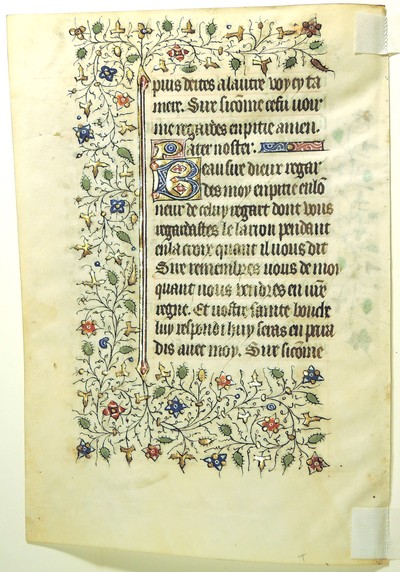 puis deites a lautre voy cy ta
mere. Sire sicome ce fu voir
me regardes en pitie amen.
Pater noster.
Beau sire dieux regar
des moy en pitie en lo̅
neur de celuy regart dont vous
regardastes le larron pendant
en la croix quant il vous dit
Sire remembres vous de moy
quant vous vendres en vr̅e
regne. Et vostre sainte bouche
luy respondi huy seras en para
dis avec moy. Sire sico̅me